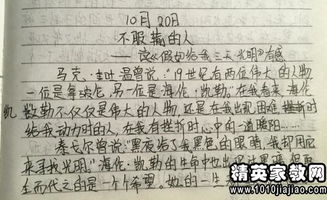 10月20日
不服输的人
——读《假如给我三天光明》有感
马克·吐温曾说:“19世纪有两位伟大的人物
一位是拿破仑,另一位是海伦·凯勒。”在我看来,海伦
凯勒不仅仅是伟大的人物,还是在我出现困难挫折时
给我动力时的人,在我有挫折时心中的一道暖阳……
泰戈尔曾说:“黑夜给了我黑色的眼睛,我却用它
来寻找光明。”海伦·凯勒的生命中也
而代之的是一个个希望。她的一生
精英家教网
www.1010jiajiao.com